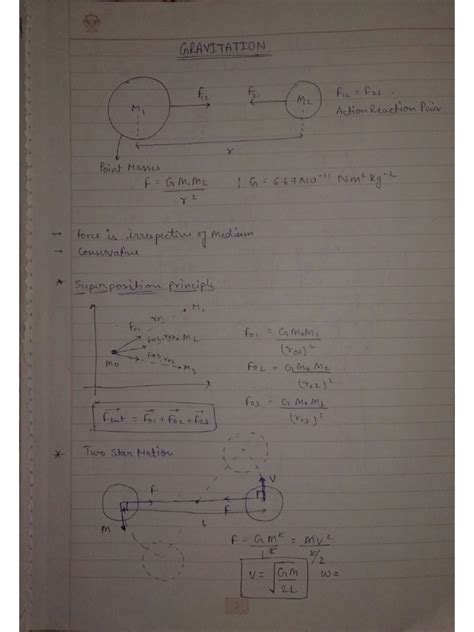 GRAVITATION
M₁ F₁₂ F₂₁ M₂ F₁₂ = F₂₁
Action Reaction Pair
r
Point Masses
F = G M₁ M₂ / r² ; G = 6.67×10⁻¹¹ Nm² Kg⁻²
→ Force is irrespective of Medium
→ Conservative
* Superposition principle
M₁
F₀₁ r₀₁
F₀₂ r₀₂ M₂
F₀₃ r₀₃ M₃
M₀
F₀₁ = G M₀ M₁ / (r₀₁)²
F₀₂ = G M₀ M₂ / (r₀₂)²
F₀₃ = G M₀ M₃ / (r₀₃)²
F⃗net = F⃗₀₁ + F⃗₀₂ + F⃗₀₃
* Two Star Motion
F L F V
M
F = G M² / L² = M V² / L/2
V = √(GM / 2L) ω =